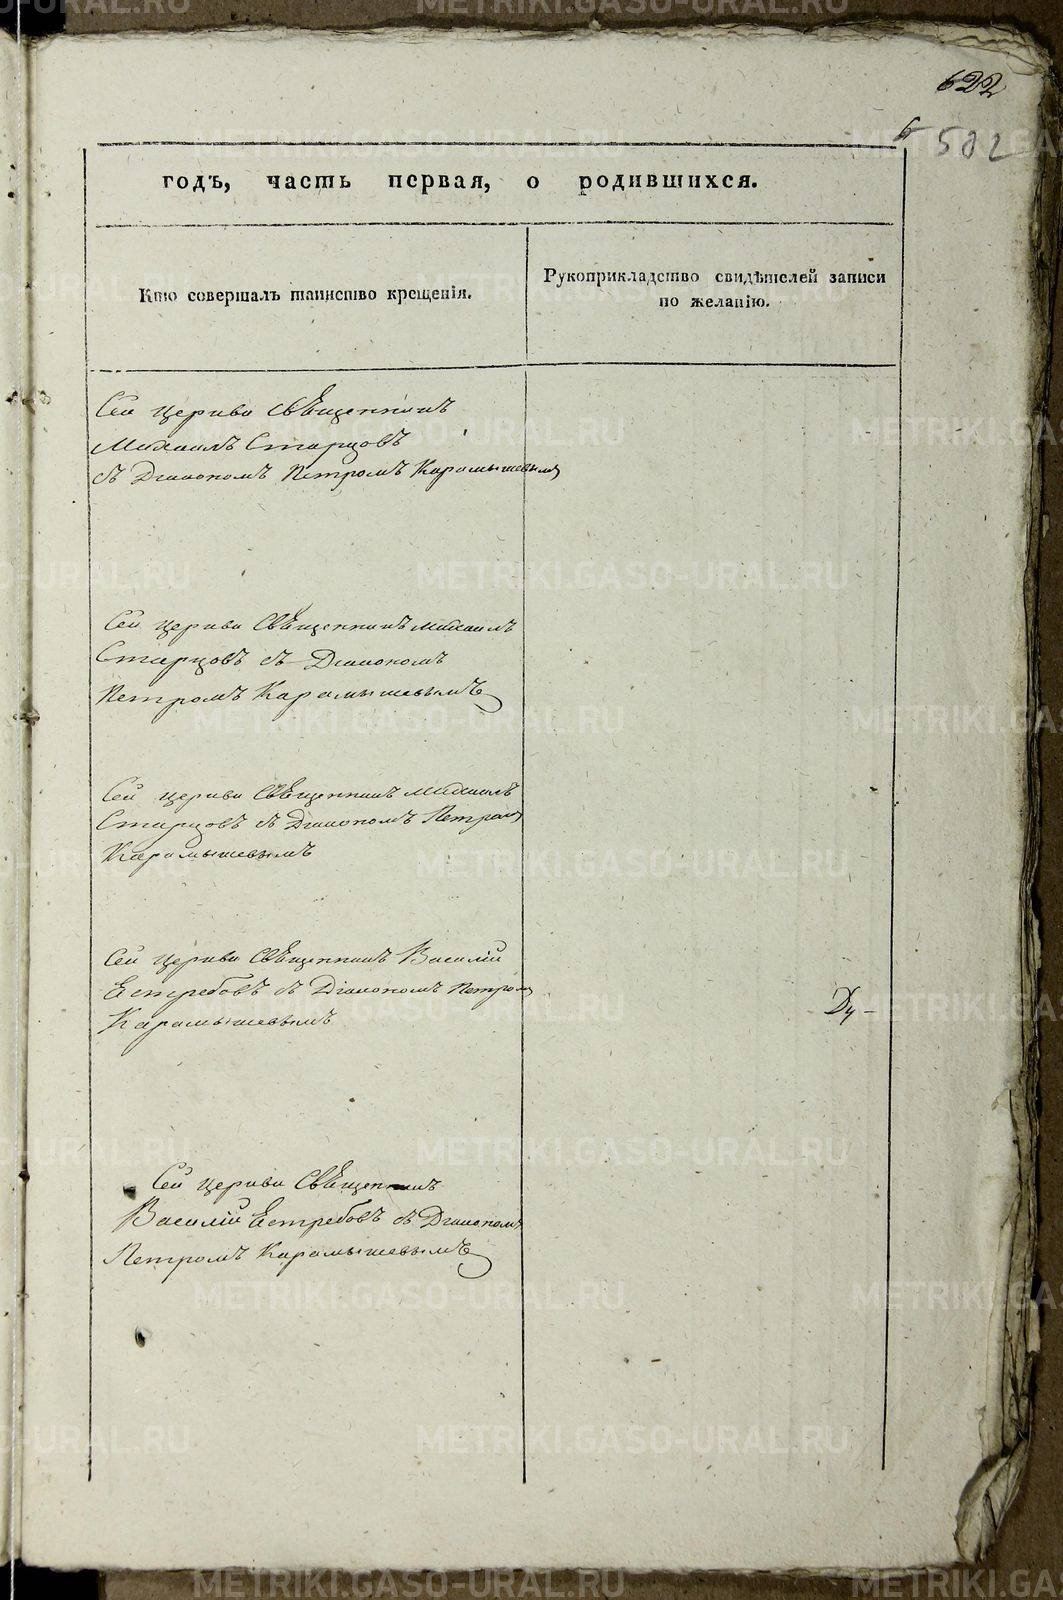 622
502
годъ, часть первая, о родившихся.
Кто совершалъ таинство крещенія.
Рукоприкладство свидѣтелей записи
по желанію.
Сей церкви Свѣщенникъ
Михаилъ Старцовъ
съ Діакономъ Петромъ Карамышевымъ
Сей церкви Свѣщенникъ Михаилъ
Старцовъ съ Діакономъ
Петромъ Карамышевымъ
Сей церкви Свѣщенникъ Михаилъ
Старцовъ съ Діакономъ Петромъ
Карамышевымъ
Сей церкви Свѣщенникъ Василій
Естребовъ съ Діакономъ Петромъ
Карамышевымъ
Сей церкви Свѣщенникъ
Василій Естребовъ съ Діакономъ
Петромъ Карамышевымъ
METRIKI.GASO-URAL.RU